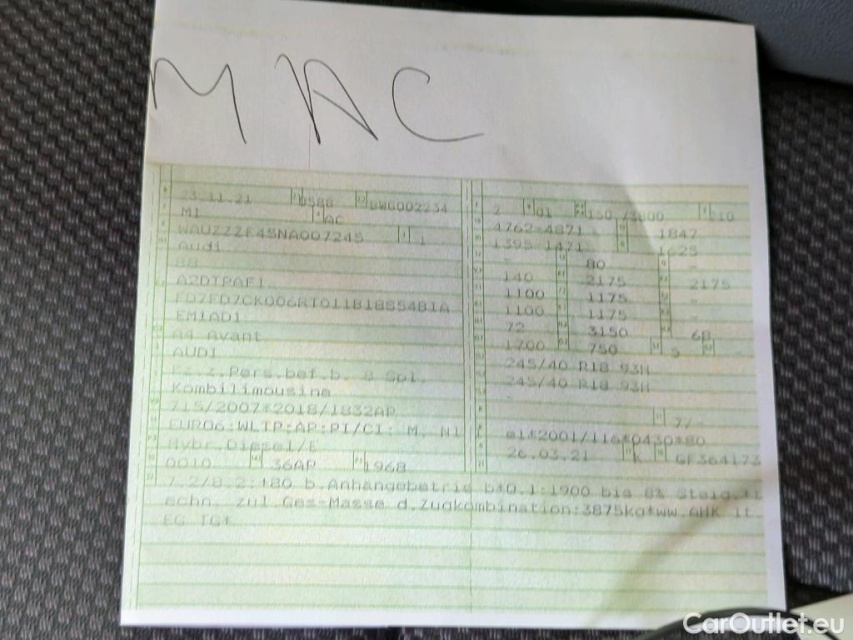 MAC
23.11.21 0588 DWG002234
M1 AC
WAUZZZF45NA007245 1
Audi
B8
A2DTPAF1
FD7FD7CK006RT011B18S54B1A
EM1AD1
A4 Avant
AUDI
Fz.z.Pers.bef.b. 8 Spl.
Kombilimousine
715/2007*2018/1832AP
EURO6:WLTP:AP:PI/CI: M, N1
Hybr.Diesel/E
0010 36AP 1968
2 01 150 /3800 210
4762-4871 1847
1395-1471 1625
- 80 -
140 2175 2175
1100 1175 -
1100 1175 -
72 3150 68
1700 750 5
245/40 R18 93H
245/40 R18 93H
-
7/-
e1*2001/116*0430*80
26.03.21 K GF364173
7.2/8.2:+80 b.Anhängebetrieb b*O.1:1900 bis 8% Steig.*t
echn. zul Ges-Masse d.Zugkombination:3875kg*ww.AHK lt
EG TG*
CarOutlet.eu